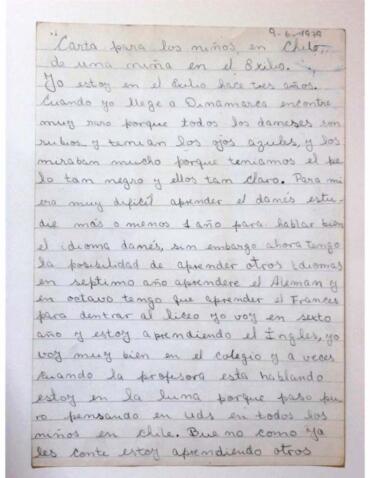 9-6-1979
"Carta para los niños, en Chile,
de una niña en el Exilio.
Yo estoy en el Exilio hace tres años.
Cuando yo llege a Dinamarca encontre
muy raro porque todos los daneses son
rubios y tenian los ojos azules, y los
miraban mucho porque teniamos el pe
lo tan negro y ellos tam claro. Para mi
era muy dificil aprender el danés estu-
die más o menos 1 año para hablar bien
el idioma danés, sin embargo ahora tengo
la posibilidad de aprender otros idiomas
en septimo año aprendere el Aleman y
en octavo tengo que aprender el Frances
para dentrar al liceo yo voy en sexto
año y estoy aprendiendo el Íngles, yo
voy muy bien en el colegio y a veces
cuando la profesora esta hablando
estoy en la luna porque paso pu
ro pensando en uds en todos los
niños en chile. Bueno como ya
les conte estoy aprendiendo otros